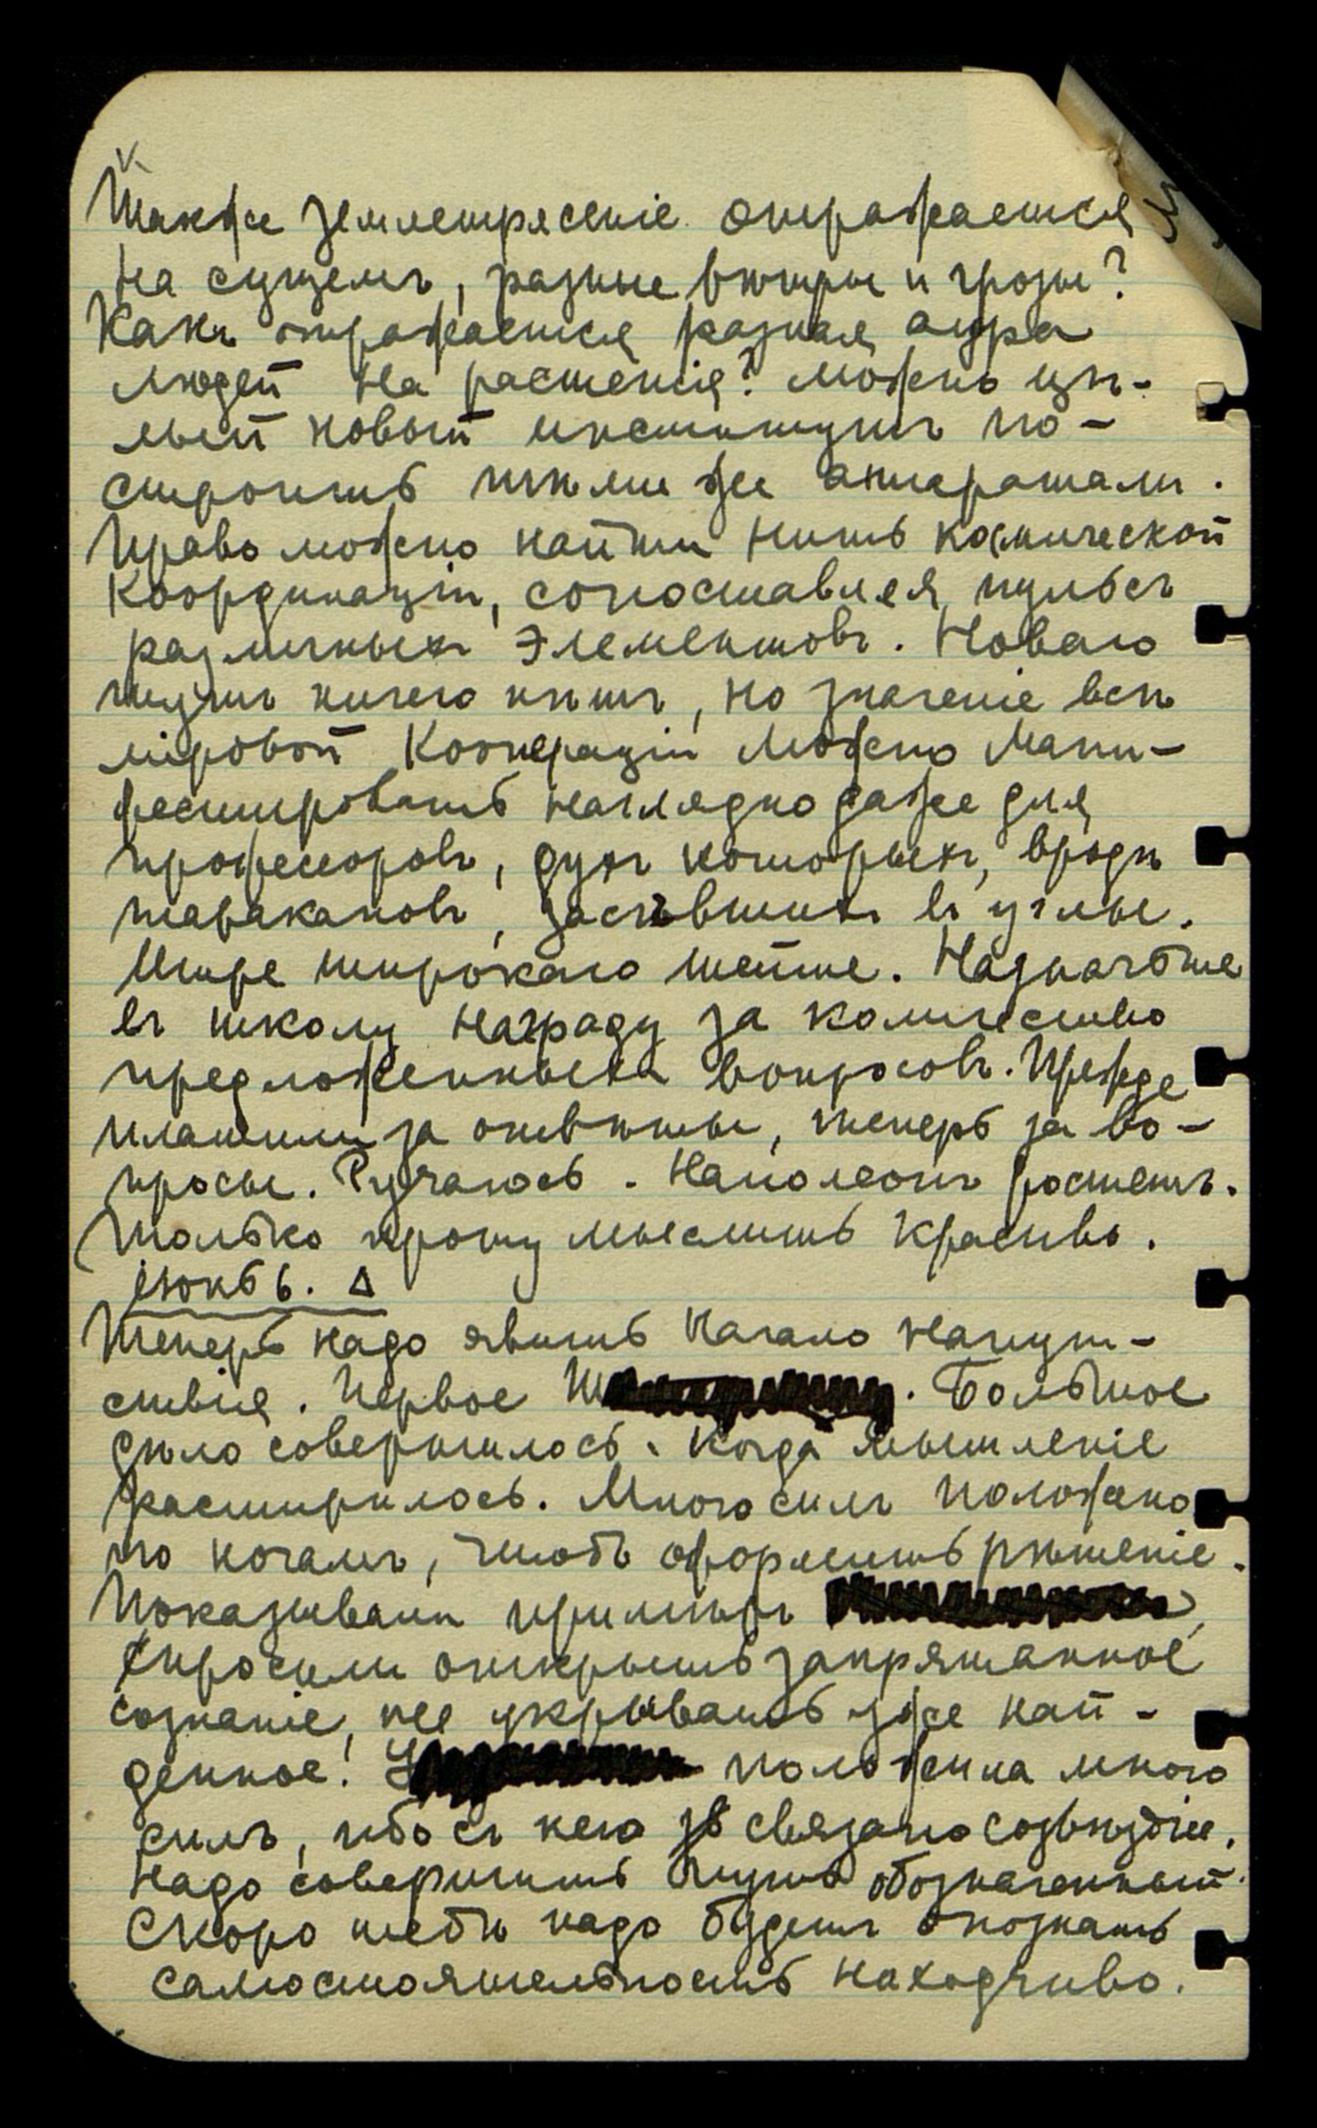 Также землетрясеніе отражается
на сущемъ, разные вѣтры и грозы?
Какъ отражается разная аура
людей на растенія? Можно цѣ-
лый новый институтъ по-
строить тѣми же аппаратами.
Право можно найти нить космической
Координаціи, сопоставляя пульсъ
различныхъ Элементовъ. Новаго
тутъ ничего нѣтъ, но значеніе всѣ
міровой Кооперації можно мани-
фестировать наглядно даже для
профессоровъ, духъ которыхъ, вродѣ
таракановъ, засѣвшихъ въ углы.
Игре широкаго
въ школу награду за количество
предложенныхъ вопросовъ. Прежде
платили за отвѣты, теперь за во-
просы. Ручаюсь. Наполеонъ ростетъ.
Только прошу мыслить красиво.
Іюнь 6. Δ
Теперь надо явить Начало напут-
ствія. Первое. Большое
дѣло совершилось. Когда мышленіе
расширилось. Много силъ положено
по ночамъ, чтобъ оформить рѣшеніе.
Показывали примѣръ
Спросили открыть запрятанное
сознаніе, не укрывать уже най-
денное! положила много
силъ, ибо съ нею связано созвѣздіе.
Надо совершить Путь обозначенный.
Скоро тебѣ надо будетъ опознать
самостоятельность находчиво.